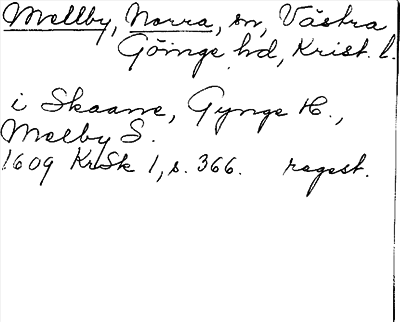 Mellby, Norra, sn, Västra
Göinge hd, Krist. l.
i Skaane, Gynge H.,
Melby S.
1609 KrSk 1, s. 366. regest.